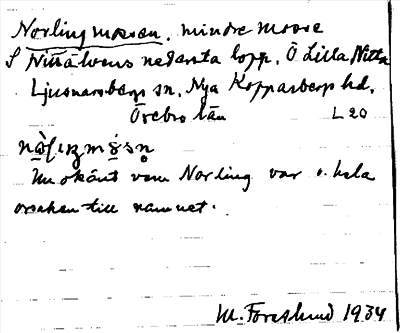 Norlingmossen, mindre mosse
S Nittälvens nedersta lopp, Ö Lilla Nitten
Ljusnarsbergs sn, Nya Kopparbergs hd,
Örebro län L 20
Nu okänt vem Norling var o. hela
orsaken till namnet.
M. Forslund 1934